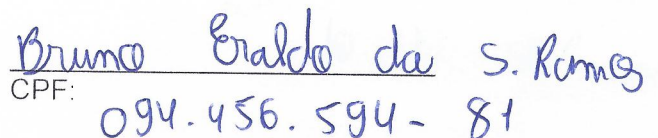 Bruno Eraldo da S. Ramos
CPF:
094.456.594-81